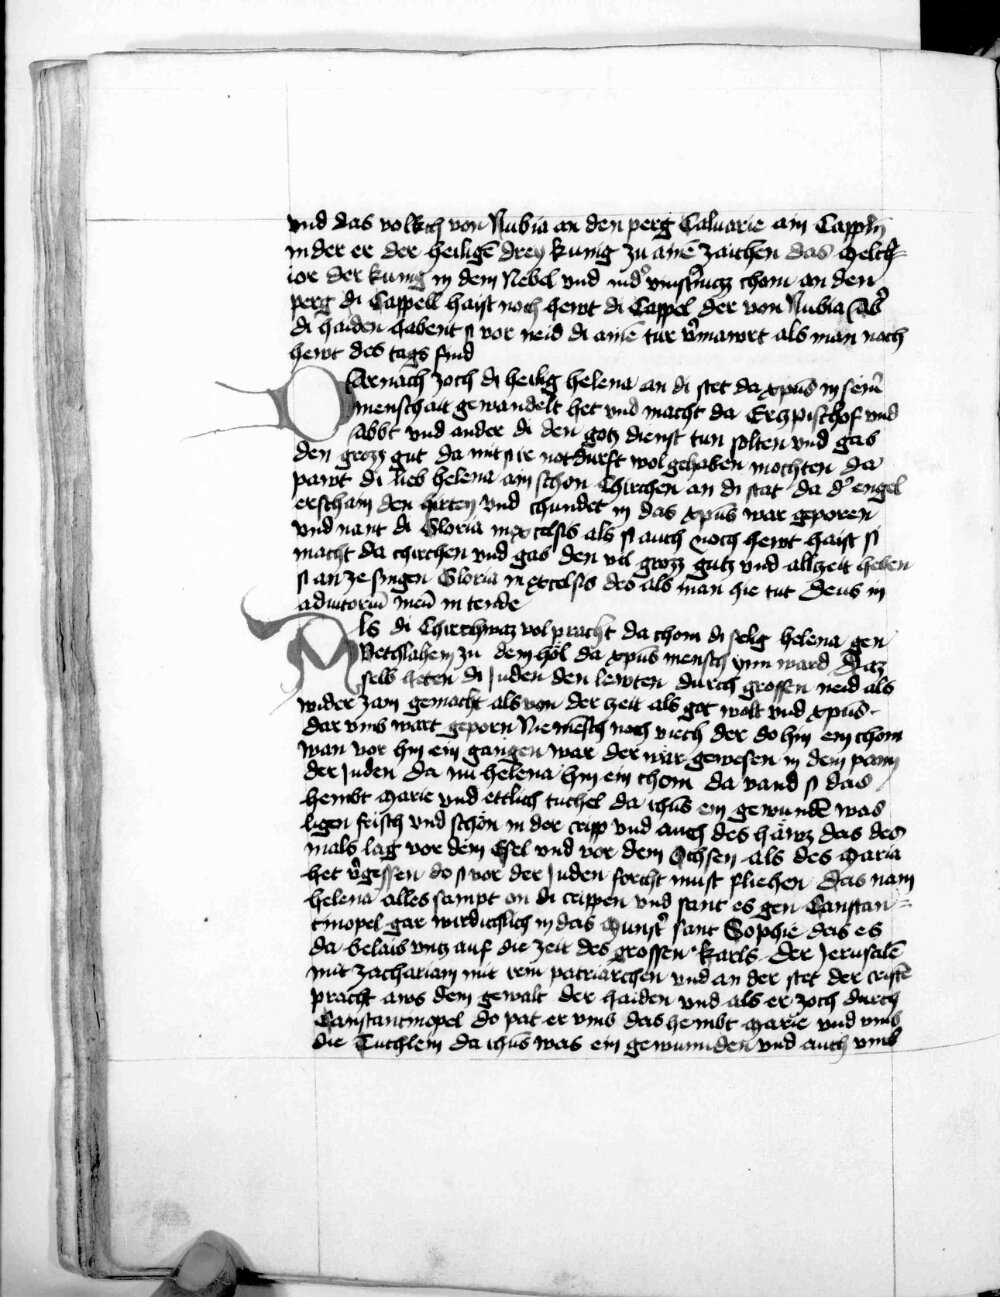 vnd das volkch von Nubia an den perg Caluarie ain Cappeln
in der er der heiligē drey kunig zu ainē zaichen das Melch=
ior der kunig in dem Nebel vnd vinstnuzz chom an den
perg di Cappell haist noch hewt di Cappel der von Nubia Ab
di haiden habent si vor neid di ainē tur vmawrt als man noch
hewt des tags sind
Darnach zoch di heilig helena an di stet da xpūs in seinē
menschait gewandelt het vnd macht da Erczpischof vnd
Abbt vnd ander di den gotz dienst tun solten vnd gab
den grozz gut da mit si ir notdurft wol gehaben mochten da
pawt di lieb helena ain schon Chirchen an di stat da d engel
erscham den hirten vnd chundet in das xpūs war geporen
vnd nant di Gloria in excelsis als si auch noch hewt haist si
macht da chirchen vnd gab den vil grozz gutz vnd allzeit heben
si an ze singen Gloria in excelsis deo als man hie tut Deus in
adiutoriū meū intende
Als di Chirchen waz volpracht da chom di selig helena gen
Bethlahem zu dem höl da xpūs mensch ynn ward Daz
selb heten di Juden den lewten durch grossen neid als
wider zam gemacht als von der zeit als got wolt vnd xpūs
dar vmb wart geporn Nie mēsch noch viech der do hin ein chom
wan wor hin ein gangen war der wär gewesen in dem pann
der Juden da nu helena hin ein chom da vand si das
hembt Marie vnd ettlich tuchel da ihūs ein gewundē was
ligen frisch vnd schön in der cripp vnd auch des häwz das des
mals lag vor dem Esel vnd vor dem Ochsen als des Maria
het vgessen do si vor der Juden forcht must fliehen Das nam
helena alles sampt on di crippen vnd sant es gen Constan=
tinopel gar wirdichlich in das Munst sant Sophie das es
da belaib vntz auf die zeit des grossen karls der Jerusalē
mit zachariam mit dem patriarchen vnd an der stet der cristē
pracht aws dem gewalt der haiden vnd als er zoch durch
Constantinopel do pat er vmb das hembt Marie vnd vmb
die Tuchlein da ihūs was ein gewunnden vnd auch vmb